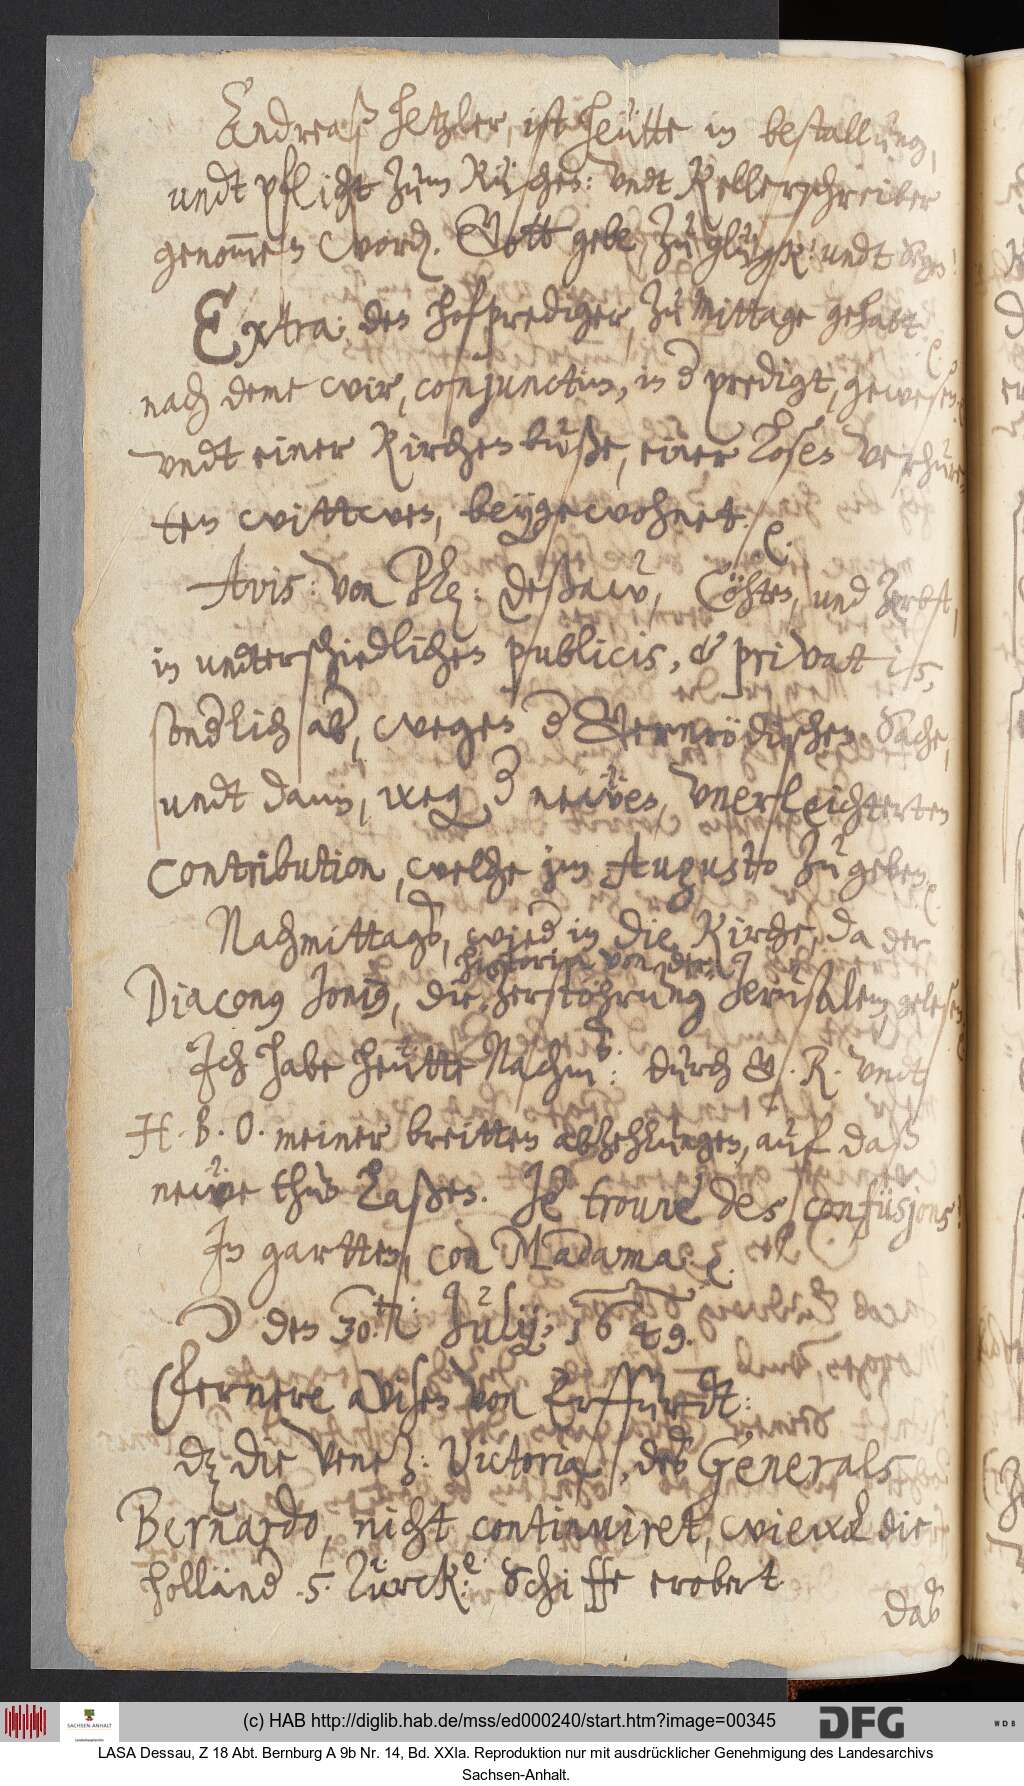 Andreaß Hetzler, ist heütte in bestallung,
undt pflicht zum Küchen: undt Kellerschreiber
genom̅en word. Gott gebe, zu glück: undt
Extra: den hofprediger, zu Mittage gehabt
nach deme wir, conjunctim, in d predigt, gewesen,
undt einer Kirchenbuße, einer Losen verhure¬
ten wittwen, beygewohnet. e.
Avis: von Deßaw, Cöhten, und Zerbst,
in undterschiedlichen publicis, & privatis,
sondlich ab, wegen d Gernrödischen Sache,
undt dann, weg d newen, unerleichterten
contribution, welche im Augusto zu geben. e.
Nachmittags, wied in die Kirche, da der
historia von der
Diacon9 Joni9, die zerstöhrung Jerusalem gelesen
Ich habe heütte Nachm: durch G. R. undt
H. B. O. meiner breitten abzehlungen, auf daß
newe thun Laßen. Je trouve des confüsjons!
In gartten, con Madama. e.
den 30.ten: July: 1649.
Fernere avisen von Erffurdt:
dz die Venez: Victoria, des Generals
Bernardo, nicht continuiret, wiewol die
holländ .5. Türck:e Schiffe erobert
das
(c) HAB http://diglib.hab.de/mss/ed000240/start.htm?image=00345
SACHSEN-ANHALT
DFG
WDB
LASA Dessau, Z 18 Abt. Bernburg A 9b Nr. 14, Bd. XXIa. Reproduktion nur mit ausdrücklicher Genehmigung des Landesarchivs
Sachsen-Anhalt.